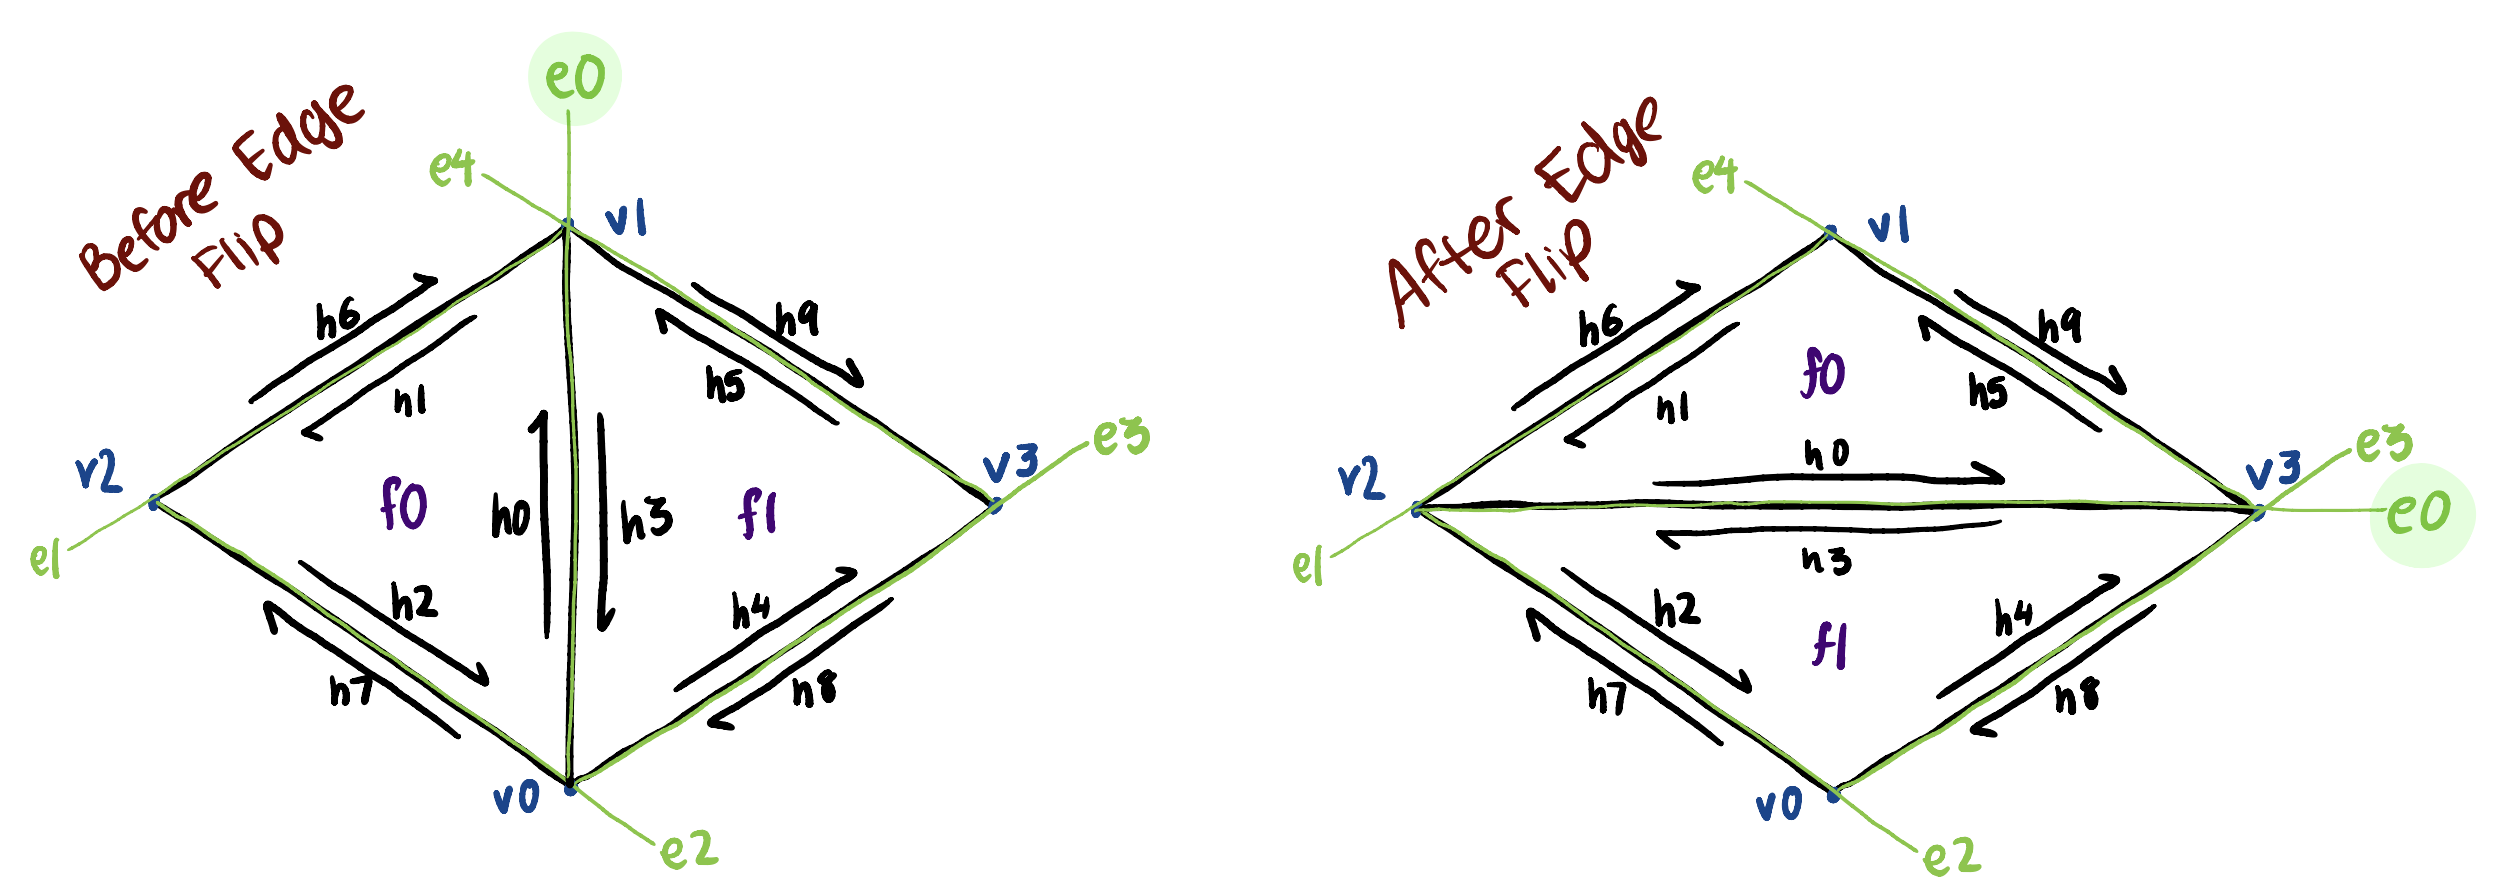 Before Edge
Flip
e0
e4
v1
h6
h9
h1
h5
v2
f0
h0
h3
f1
v3
e3
e1
h2
h4
h7
h8
v0
e2
After Edge
Flip
e4
v1
h6
h9
f0
h1
h5
v2
h0
v3
e3
e0
e1
h3
h2
h4
f1
h7
h8
v0
e2